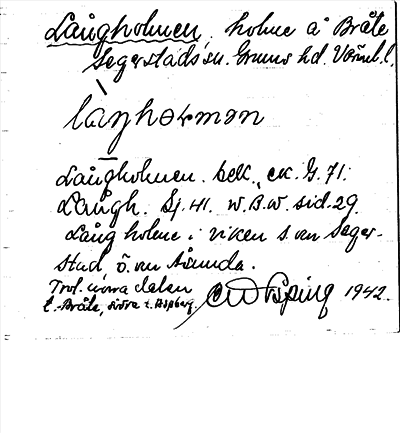 Långholmen, holme å Bråte
Segerstads sn. Grums hd. Värml. l.
låŋhɷlmən
Långholmen. bek. ek. G. 71.
Långh. Sj. 41. W.B.W. sid. 29.
Lång holme i viken s. om Seger-
stad, ö. om Åsunda.
Trol. norra delen
t. Bråte, södra t. Aspberg.
1942.